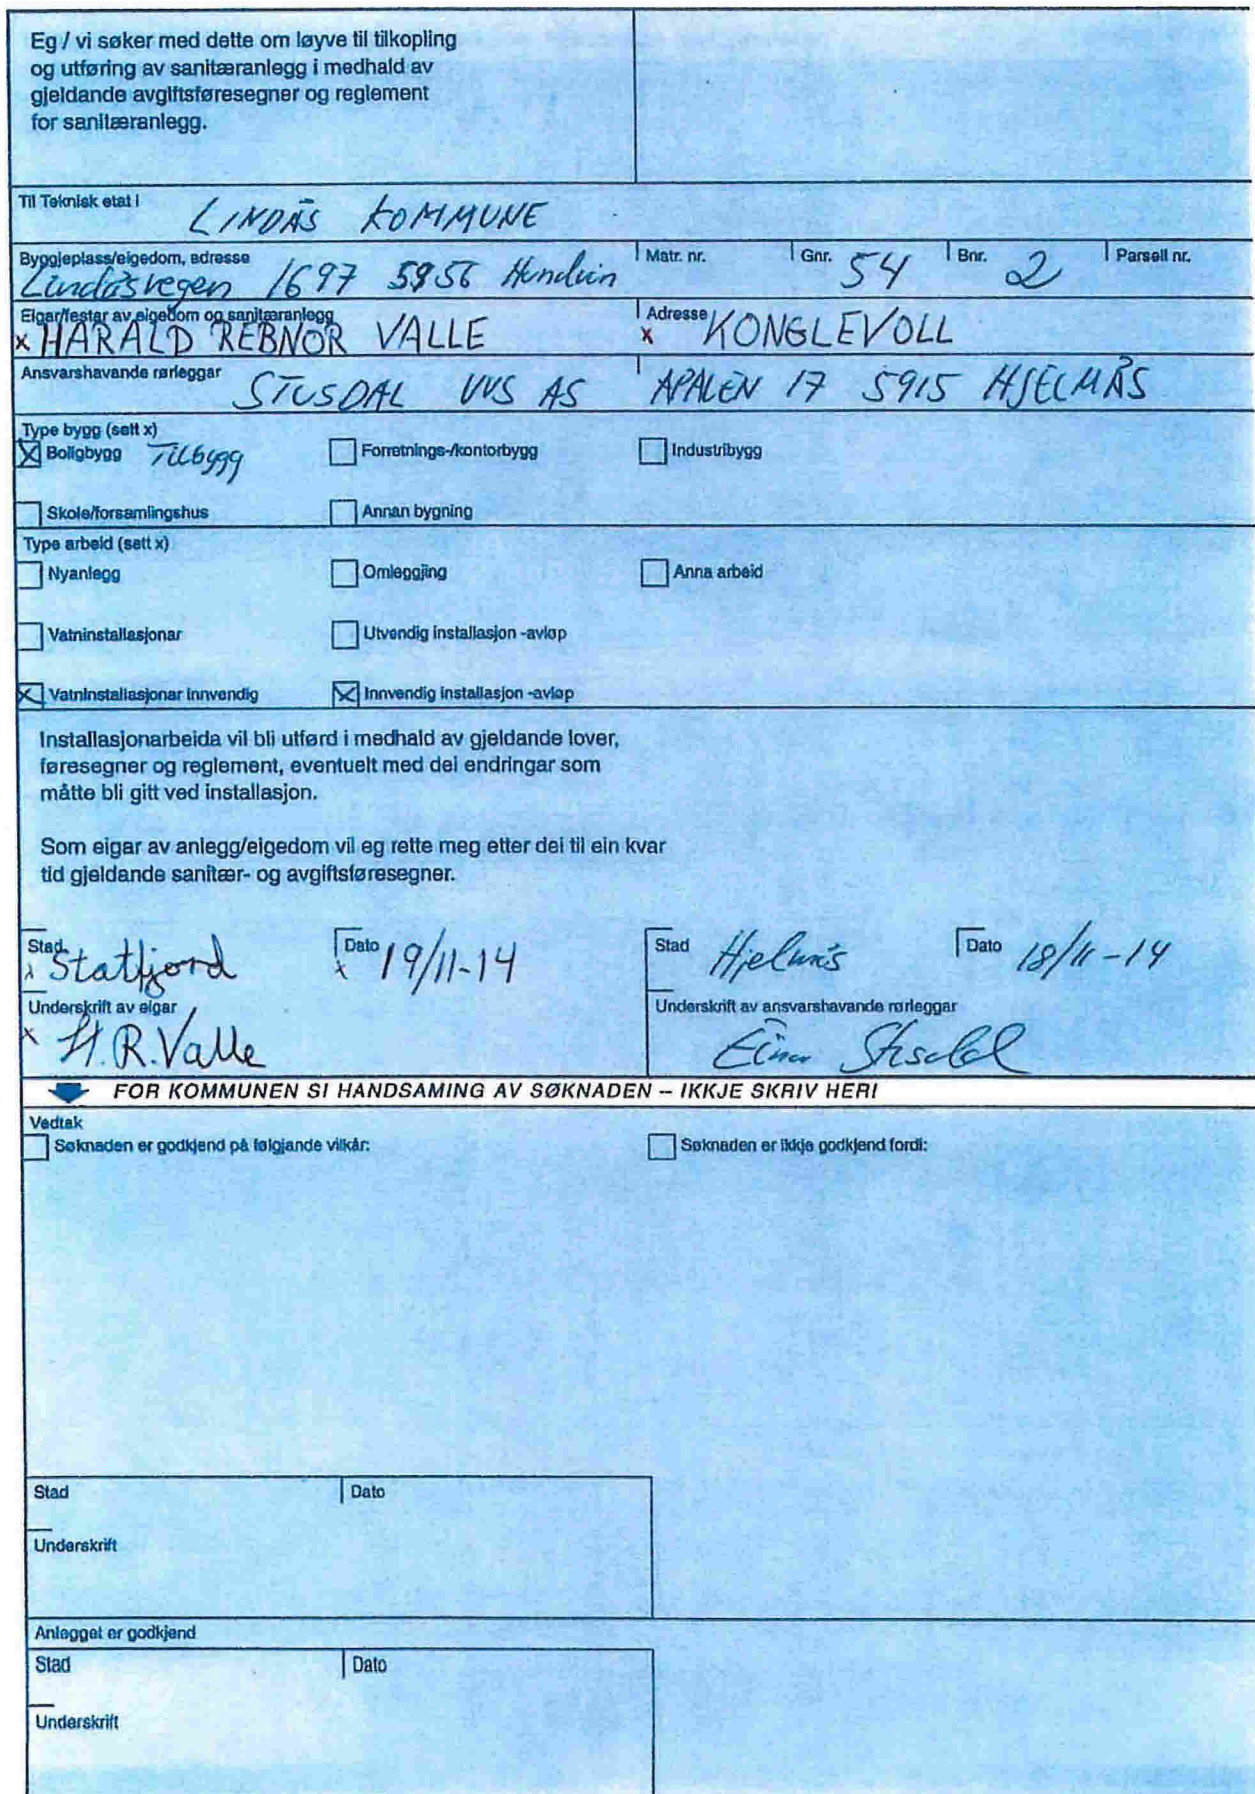 Eg / vi søker med dette om løyve til tilkopling
og utføring av sanitæranlegg i medhald av
gjeldande avgiftsføresegner og reglement
for sanitæranlegg.
Til Teknisk etat i LINDÅS KOMMUNE
Byggjeplass/eigedom, adresse Matr. nr. Gnr. 54 Bnr. 2 Parsell nr.
Lindåsvegen 1697 5956 Hundvin
Eigar/festar av eigedom og sanitæranlegg Adresse
x HARALD REBNOR VALLE x KONGLEVOLL
Ansvarshavande rørleggar STUSDAL VVS AS APALEN 17 5915 HJELMÅS
Type bygg (sett x)
X Boligbygg Tilbygg Forretnings-/kontorbygg Industribygg
Skole/forsamlingshus Annan bygning
Type arbeid (sett x)
Nyanlegg Omleggjing Anna arbeid
Vatninstallasjonar Utvendig installasjon -avløp
X Vatninstallasjonar innvendig X Innvendig installasjon -avløp
Installasjonarbeida vil bli utførd i medhald av gjeldande lover,
føresegner og reglement, eventuelt med dei endringar som
måtte bli gitt ved installasjon.
Som eigar av anlegg/eigedom vil eg rette meg etter dei til ein kvar
tid gjeldande sanitær- og avgiftsføresegner.
Stad x Statfjord Dato x 19/11-14 Stad Hjelmås Dato 18/11-14
Underskrift av eigar Underskrift av ansvarshavande rørleggar
x H.R.Valle Einar
FOR KOMMUNEN SI HANDSAMING AV SØKNADEN – IKKJE SKRIV HER!
Vedtak
Søknaden er godkjend på følgjande vilkår: Søknaden er ikkje godkjend fordi:
Stad Dato
Underskrift
Anlegget er godkjend
Stad Dato
Underskrift